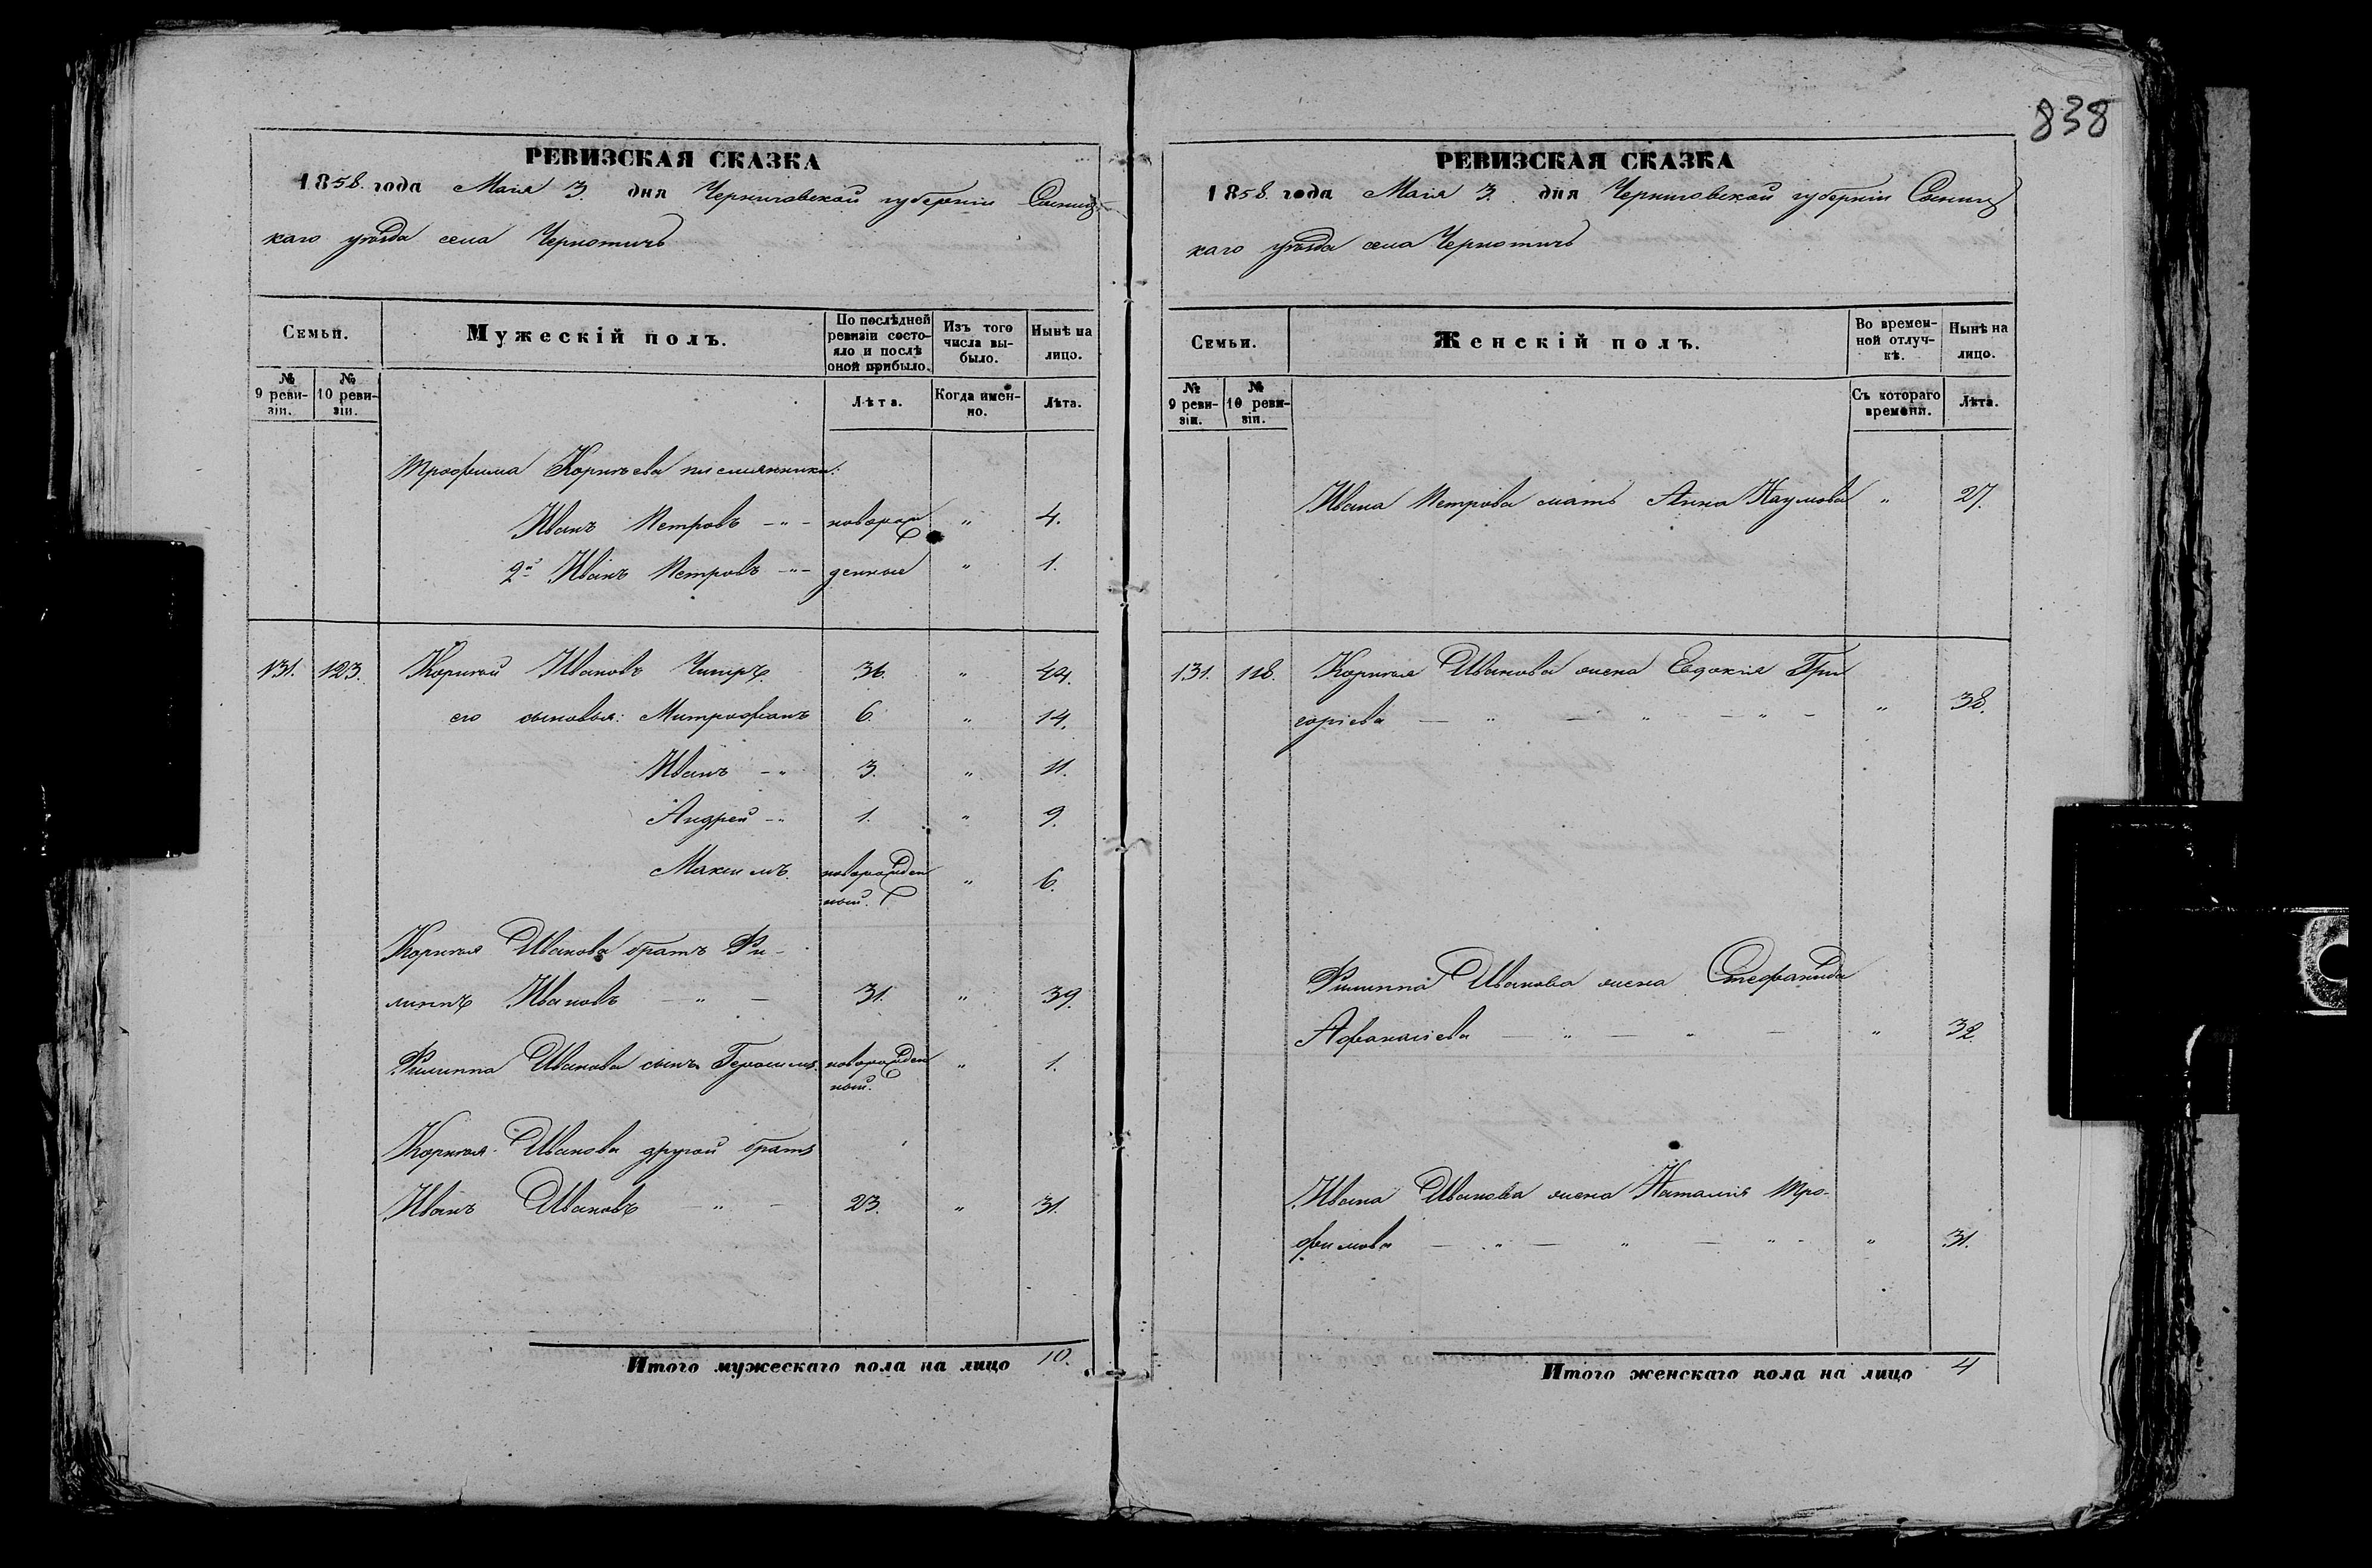 838
РЕВИЗСКАЯ СКАЗКА
1858. года Мая 3. дня Черниговской губерніи Сосниц-
каго уѣзда села Чернотичъ
Семьи.
Мужескій полъ.
По послѣдней ревизіи состояло и послѣ оной прибыло.
Изъ того числа выбыло.
Нынѣ на лицо.
№ 9 ревизіи.
№ 10 ревизіи.
Лѣта.
Когда именно.
Лѣта.
Трофима Корнѣева племянники:
Иванъ Петровъ - " - новорож " 4.
2й Иванъ Петровъ - " - денные " 1.
131. 123. Корнѣй Ивановъ 36. " 44.
его сыновья: Митрофанъ 6. " 14.
Иванъ - " 3. " 11.
Андрей - " 1. " 9.
Максимъ. новорожден " 6.
ный.
Корнѣя Иванова братъ Фи-
липпъ Ивановъ — " — 31. " 39.
Филиппа Иванова сынъ Герасимъ. новорожден " 1.
ный.
Корнѣя Иванова другой братъ
Иванъ Ивановъ — " — 23. " 31.
Итого мужескаго пола на лицо 10.
РЕВИЗСКАЯ СКАЗКА
1858 года Мая 3. дня Черниговской губерніи Сосниц
каго уѣзда села Чернотичъ
Семьи.
Женскій полъ.
Во временной отлучкѣ.
Нынѣ на лицо.
№ 9 ревизіи.
№ 10 ревизіи.
Съ котораго времени.
Лѣта.
Ивана Петрова мать Анна Наумова " 27.
131. 118. Корнѣя Иванова жена Евдокія Гри
горіева — " — " — " — " 38.
Филиппа Иванова жена Стефанида
Афанасіева — " — " — " 32.
Ивана Иванова жена Наталія Тро-
фимова — " — " — " - " 31.
Итого женскаго пола на лицо 4